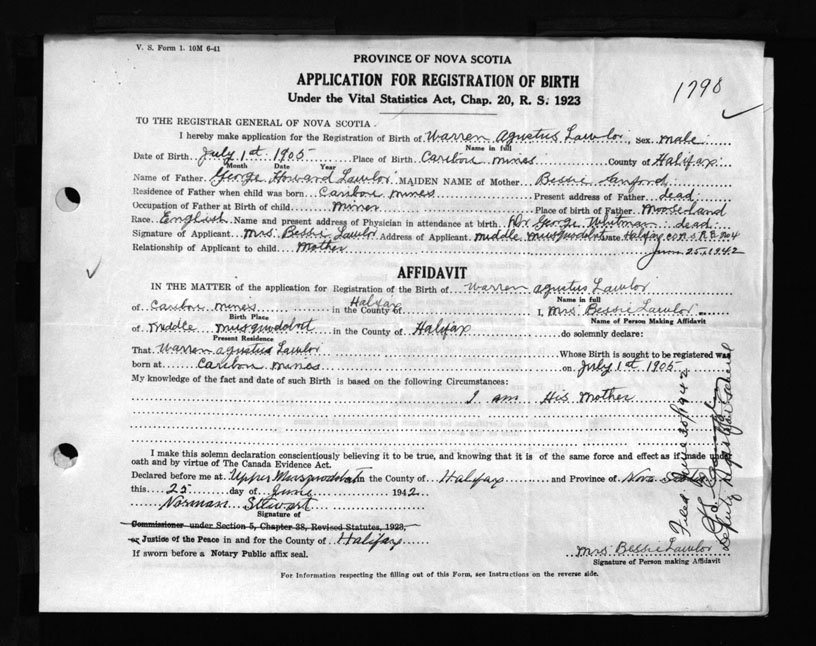 V. S. Form 1. 10M 6-41
PROVINCE OF NOVA SCOTIA
APPLICATION FOR REGISTRATION OF BIRTH
1798
Under the Vital Statistics Act, Chap. 20, R. S. 1923
TO THE REGISTRAR GENERAL OF NOVA SCOTIA
I hereby make application for the Registration of Birth of Warren Agustus Lawlor, Sex male
Name in full
Date of Birth July 1st 1905 Place of Birth Caribou mines County of Halifax
Month Date Year
Name of Father George Howard Lawlor MAIDEN NAME of Mother Bessie Sanford
Residence of Father when child was born Caribou mines Present address of Father dead
Occupation of Father at Birth of child miner Place of birth of Father Mooseland
Race English Name and present address of Physician in attendance at birth Dr George Whitman dead
Signature of Applicant Mrs Bessie Lawlor Address of Applicant middle musquodobit Date Halifax Co N.S. R.R. No 4
Relationship of Applicant to child Mother June 25, 1942
AFFIDAVIT
IN THE MATTER of the application for Registration of the Birth of Warren agustus Lawlor
Name in full
of Caribou mines in the County of Halifax I, Mrs Bessie Lawlor
Birth Place Name of Person Making Affidavit
of middle musquodobit in the County of Halifax do solemnly declare:
Present Residence
That Warren agustus Lawlor Whose Birth is sought to be registered was
born at Caribou mines on July 1st 1905
My knowledge of the fact and date of such Birth is based on the following Circumstances:
I am His Mother
I make this solemn declaration conscientiously believing it to be true, and knowing that it is of the same force and effect as if made under
oath and by virtue of The Canada Evidence Act.
Declared before me at Upper Musquodobit in the County of Halifax and Province of Nova Scotia
this 25 day of June 1942
Norman Stewart
Signature of
Commissioner under Section 5, Chapter 38, Revised Statutes, 1923,
or Justice of the Peace in and for the County of Halifax
If sworn before a Notary Public affix seal.
Mrs Bessie Lawlor
Signature of Person making Affidavit
For Information respecting the filling out of this Form, see Instructions on the reverse side.
Filed June 30/1942
Deputy Registrar General